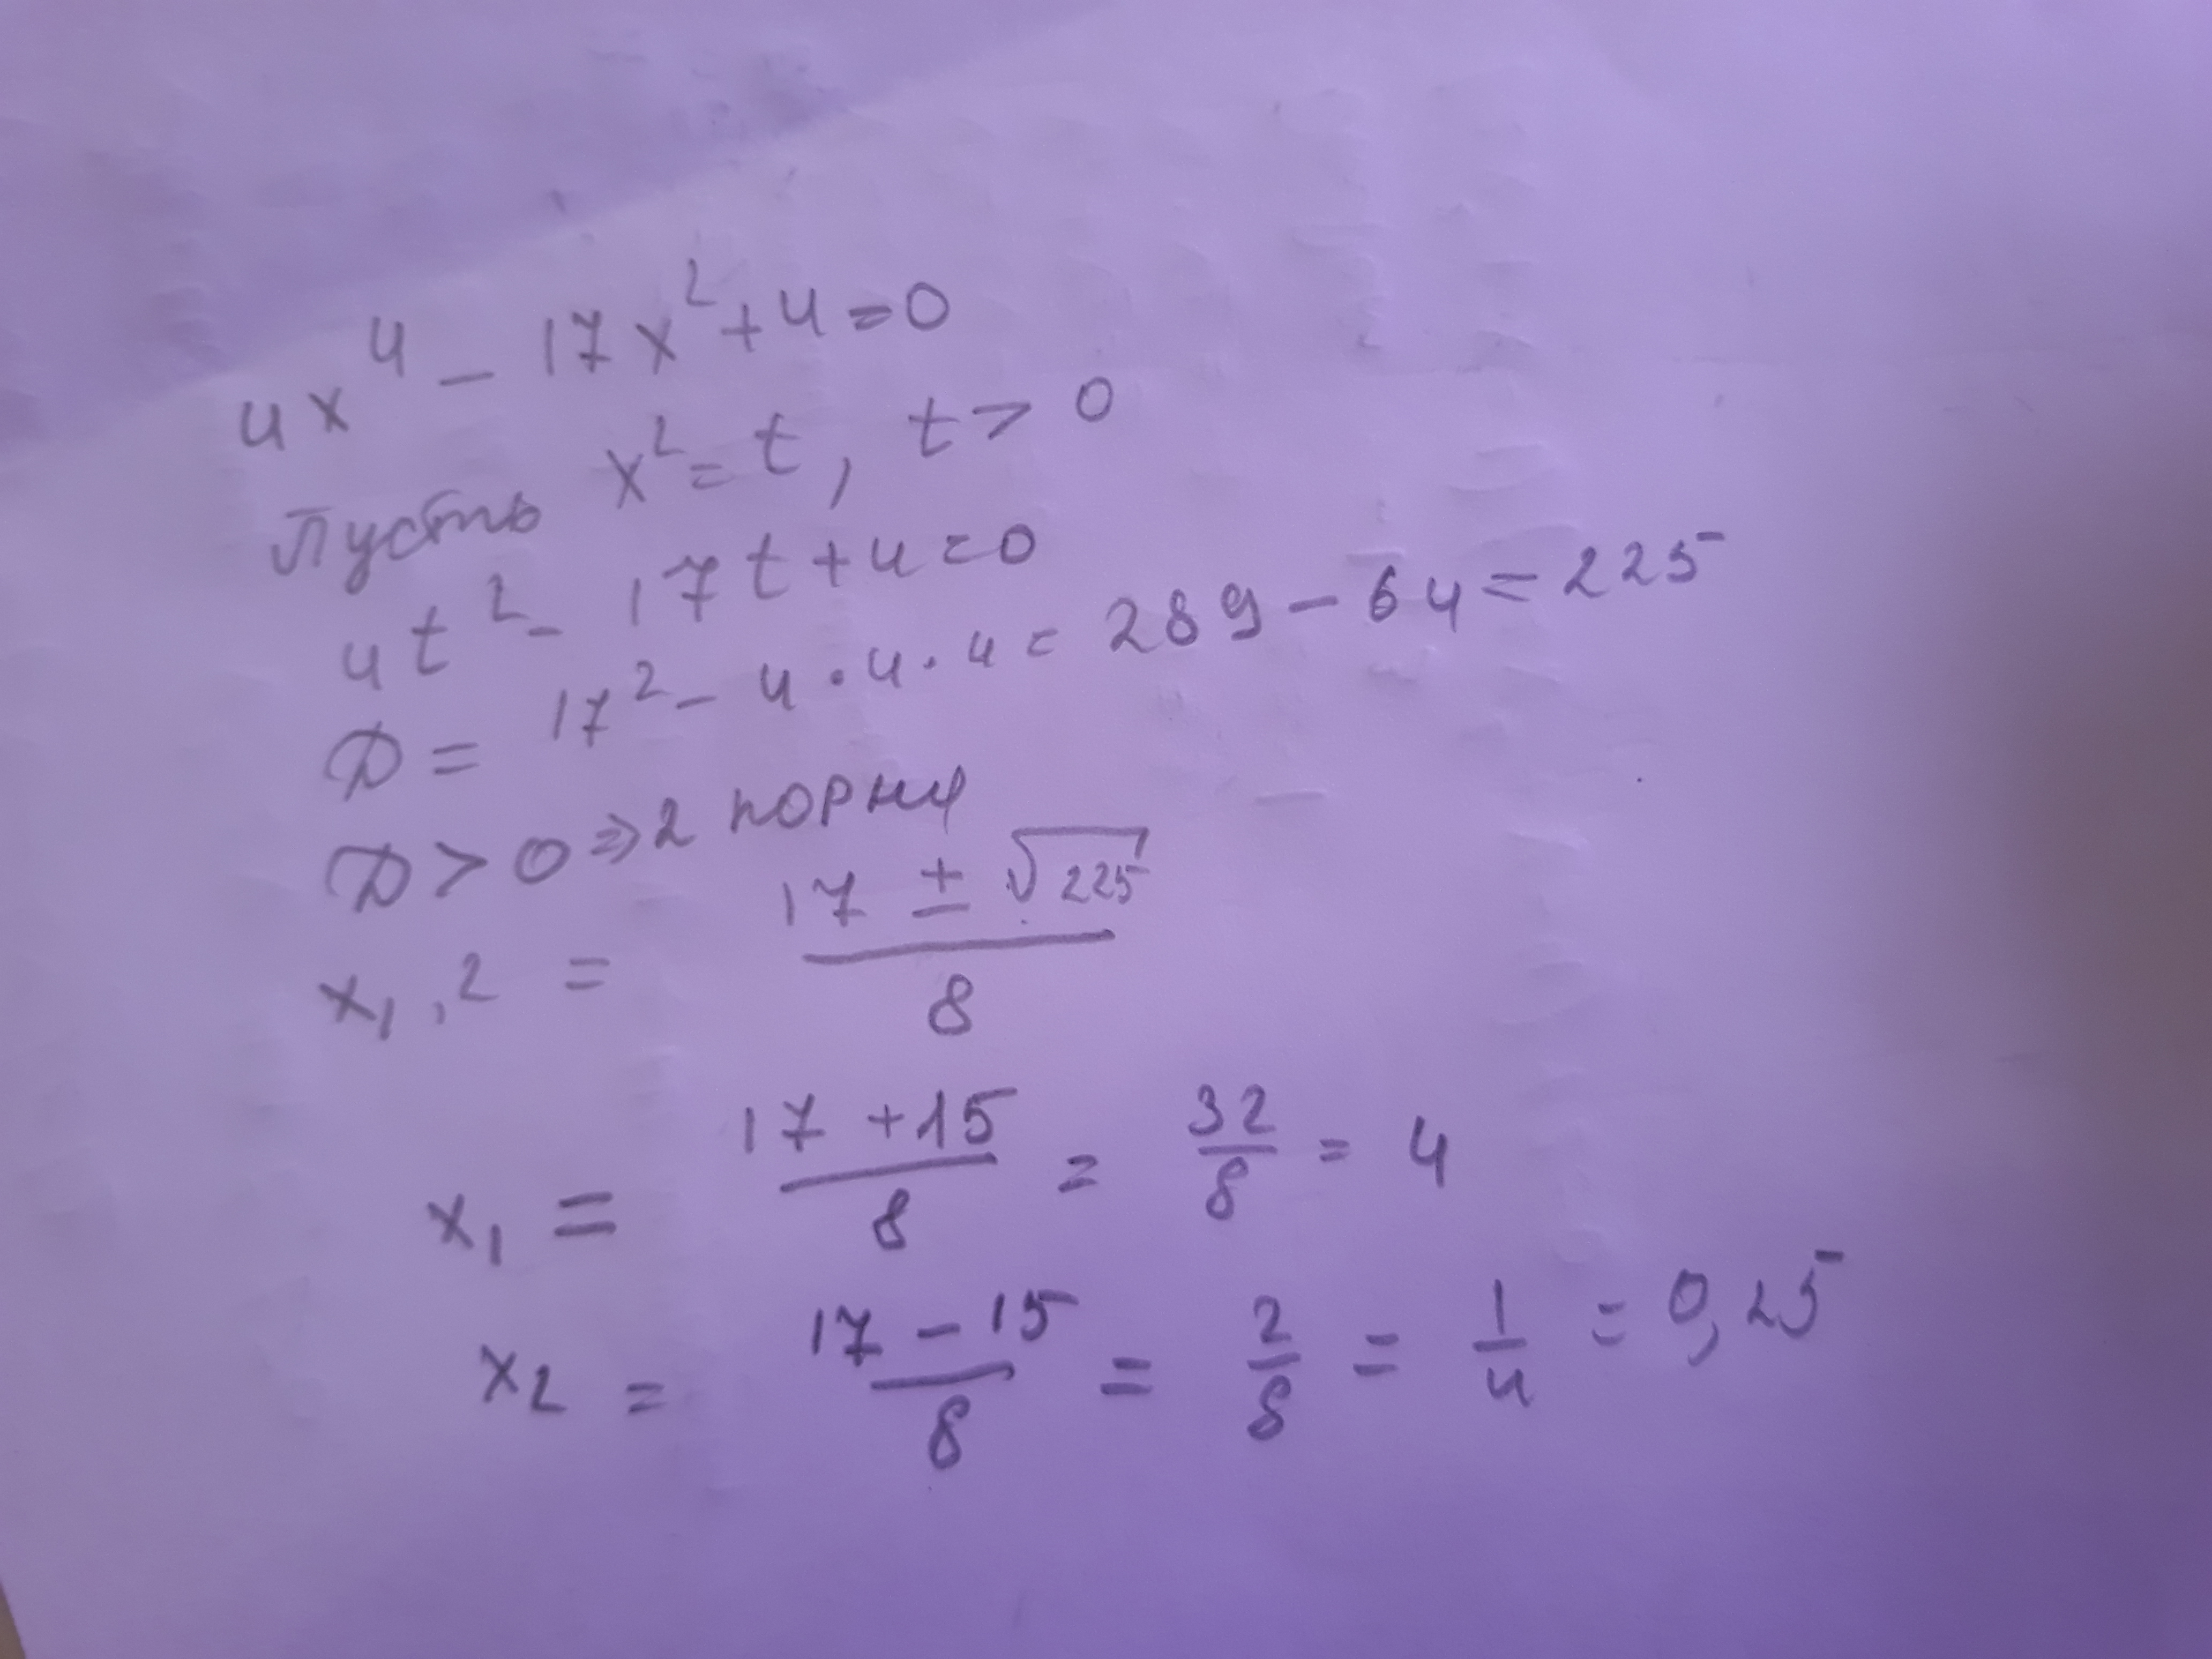 4x⁴ - 17x² + 4 = 0
Пусть x² = t, t > 0
4t² - 17t + 4 = 0
D = 17² - 4 · 4 · 4 = 289 - 64 = 225
D > 0 ⇒ 2 корня
x₁,₂ = (17 ± √225) / 8
x₁ = (17 + 15) / 8 = 32/8 = 4
x₂ = (17 - 15) / 8 = 2/8 = 1/4 = 0,25